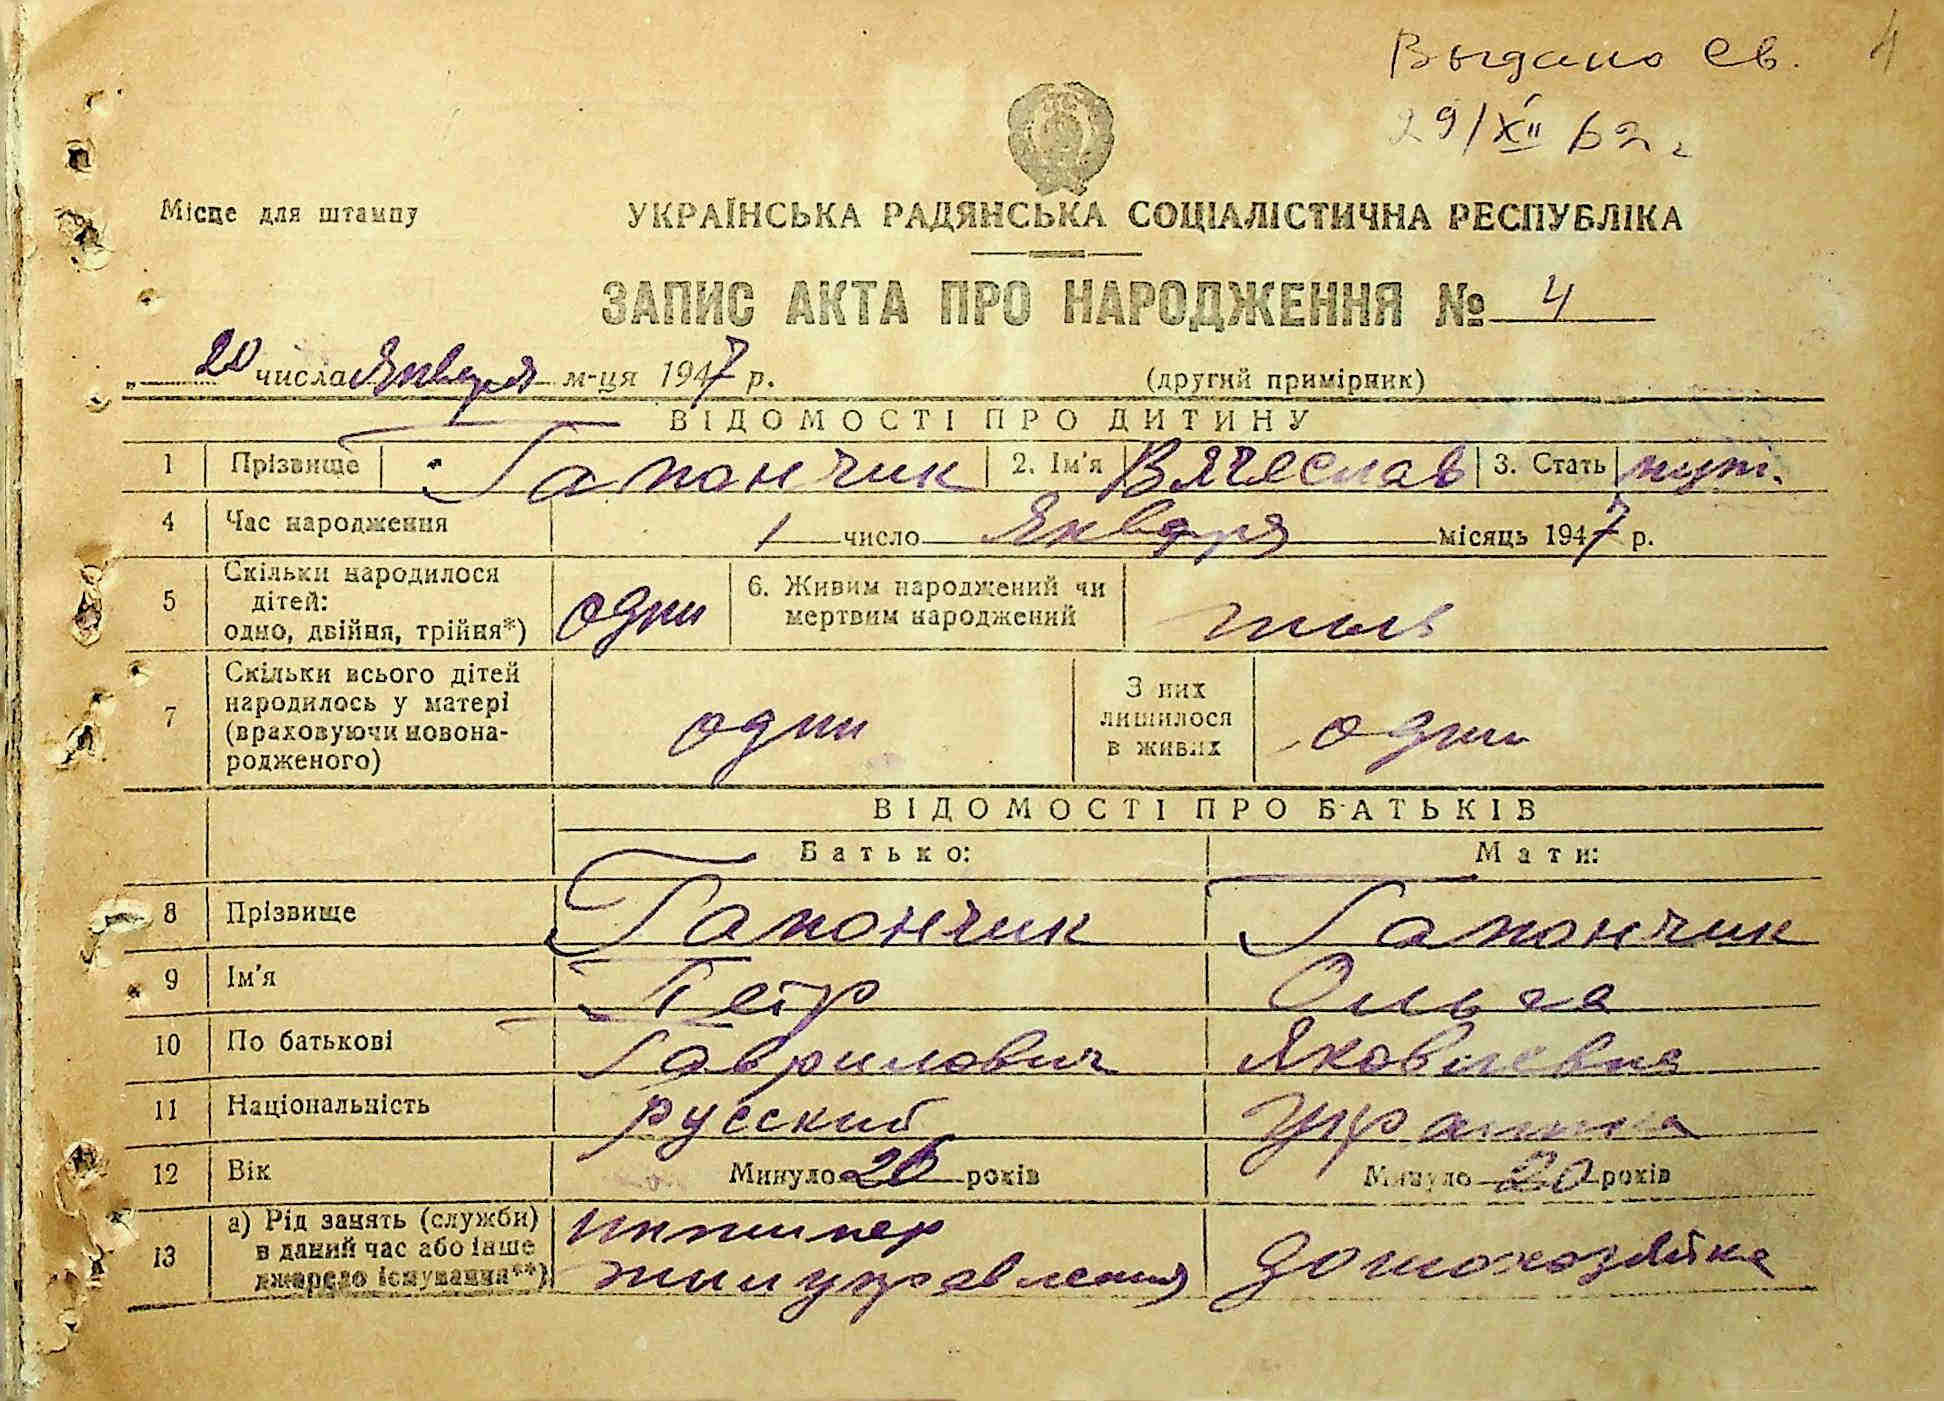 Выдано св. 4
29/XII 62 г
Місце для штампу
УКРАЇНСЬКА РАДЯНСЬКА СОЦІАЛІСТИЧНА РЕСПУБЛІКА
ЗАПИС АКТА ПРО НАРОДЖЕННЯ № 4
„ 20 числа Января м-ця 1947 р. (другий примірник)
ВІДОМОСТІ ПРО ДИТИНУ
1 Прізвище Гапончик 2. Ім'я Вячеслав 3. Стать муж.
4 Час народження 1 число Января місяць 1947 р.
5 Скільки народилося дітей: одно, двійня, трійня*) один 6. Живим народжений чи мертвим народжений жив
7 Скільки всього дітей народилось у матері (враховуючи новонародженого) один З них лишилося в живих один
ВІДОМОСТІ ПРО БАТЬКІВ
Батько: Мати:
8 Прізвище Гапончик Гапончик
9 Ім'я Петр Ольга
10 По батькові Гаврилович Яковлевна
11 Національність русский украинка
12 Вік Минуло 26 років Минуло 20 років
13 а) Рід занять (служби) в даний час або інше джерело існування**) инженер жилуправления домохозяйка